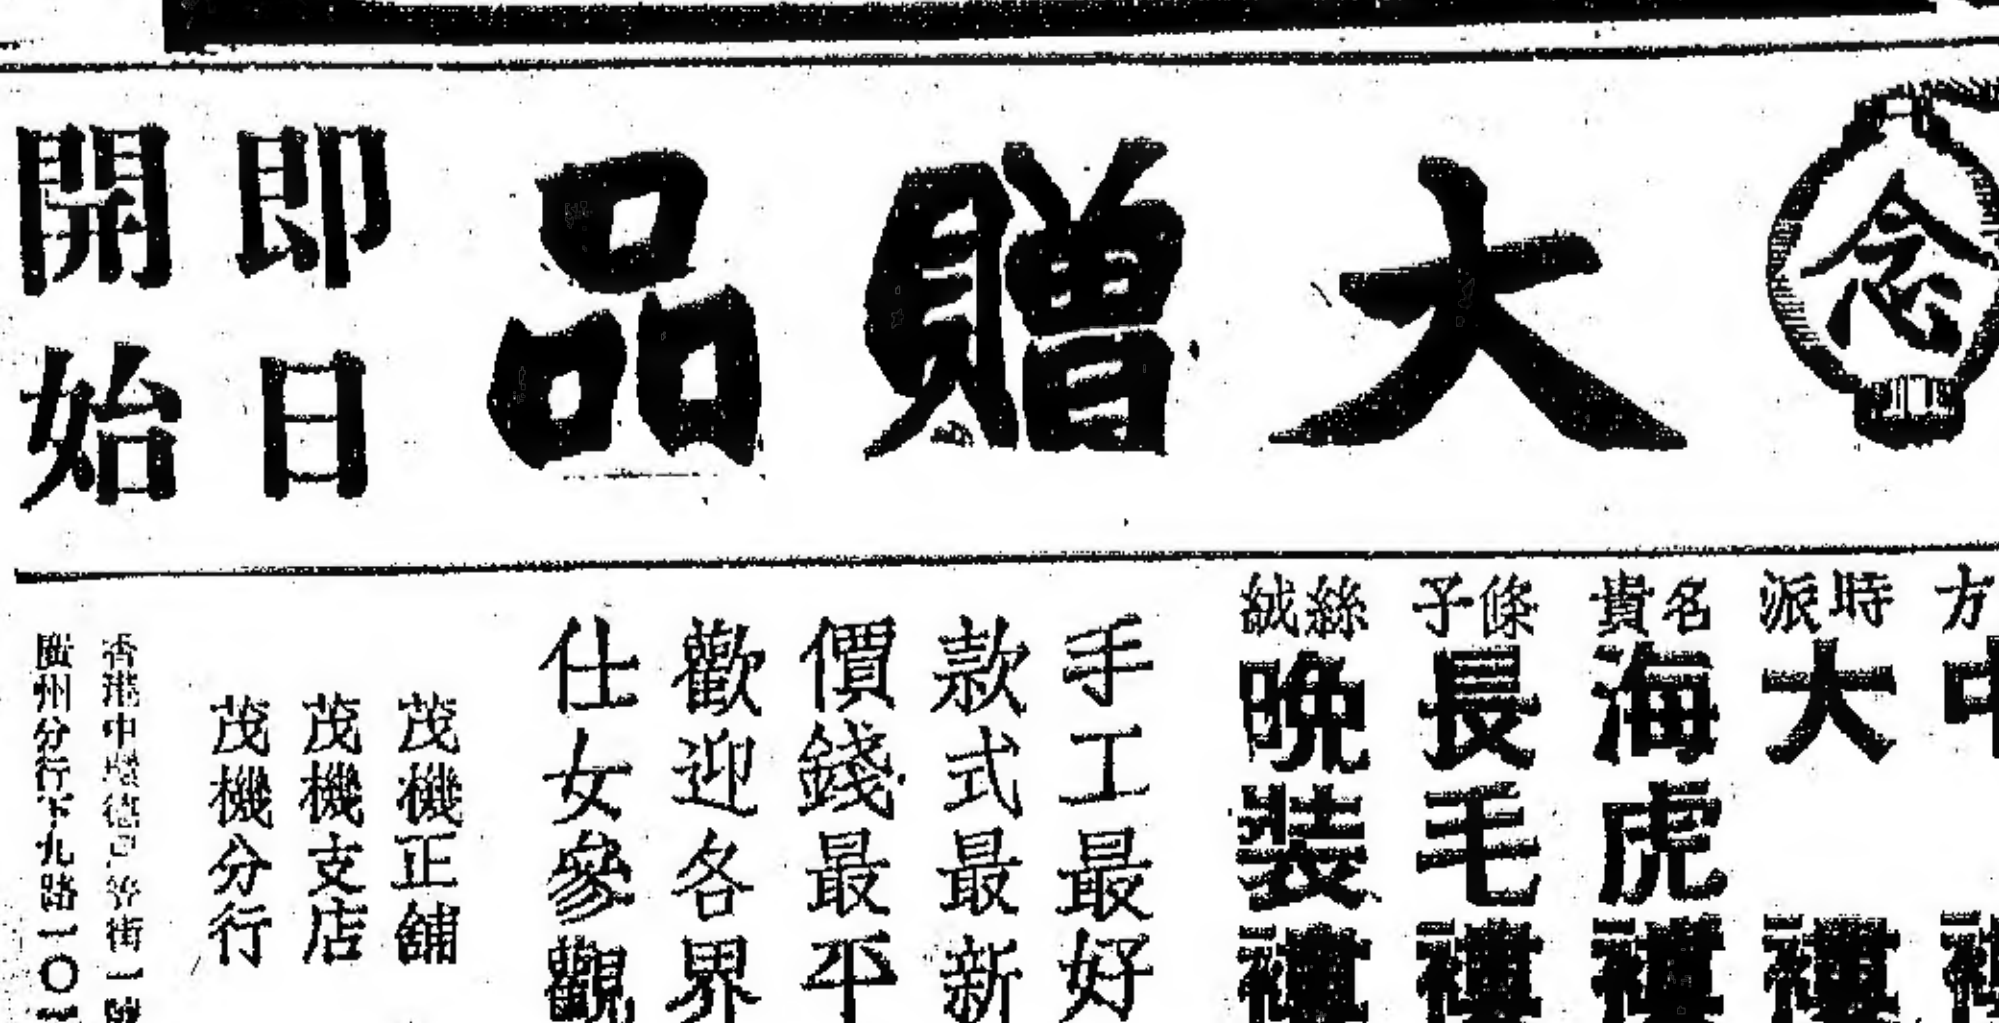 念
大贈品
即日
開始
方
時派大褸
名貴海虎褸
條子長毛褸
絲絨晚裝褸
手工最好
款式最新
價錢最平
歡迎各界
仕女參觀
茂機正舖
茂機支店
茂機分行
香港中環德己笠街一號
廣州分行下九路一〇